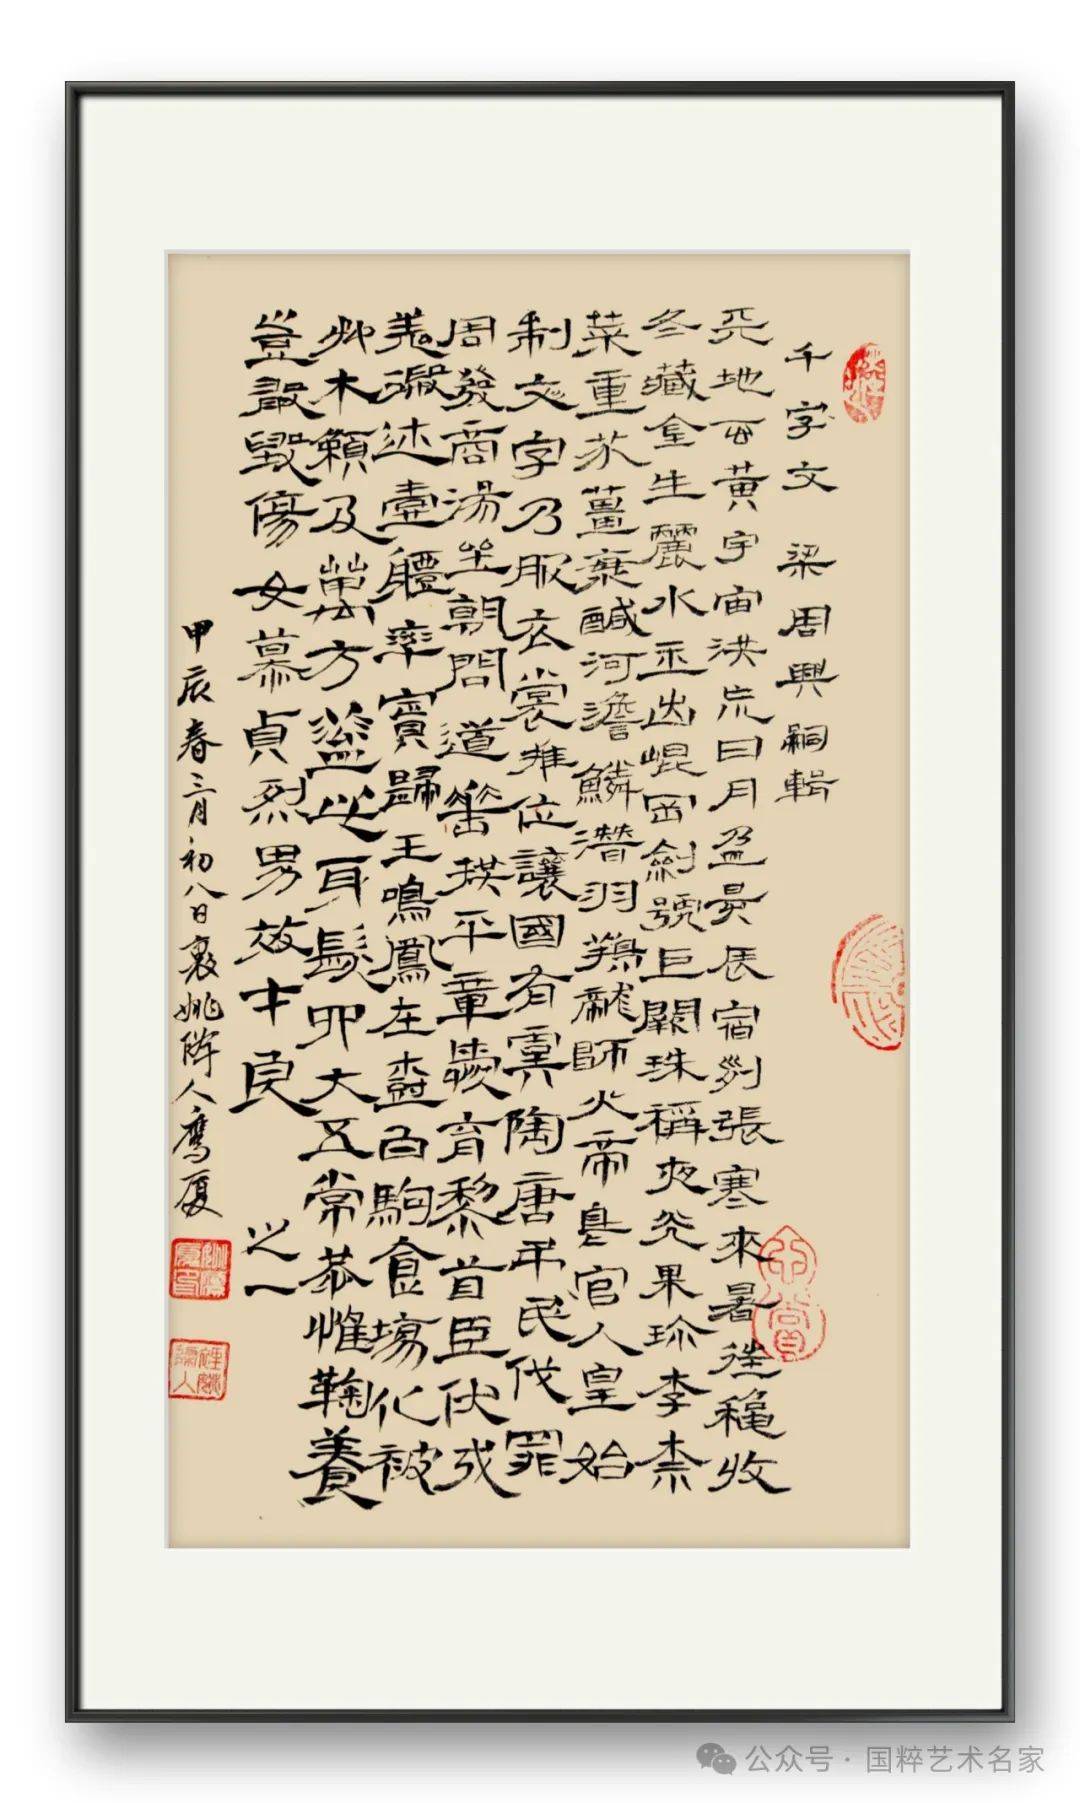 千字文 梁周興嗣輯
天地玄黃宇宙洪荒日月盈昃辰宿列張寒來暑往穐收
冬藏金生麗水玉出崐岡劍號巨闕珠稱夜光果珍李柰
菜重芥薑海鹹河澹鱗潜羽翔龍師火帝鳥官人皇始
制文字乃服衣裳推位讓國有虞陶唐弔民伐罪
周發商湯坐朝問道垂拱平章愛育黎首臣伏戎
羌遐邇壹體率賓歸王鳴鳳在樹白駒食場化被
艸木賴及萬方蓋此身髮四大五常恭惟鞠養
豈敢毀傷女慕貞烈男效才良 之一
甲辰春三月初八日襄姚人鹰厦
公众号 · 国粹艺术名家